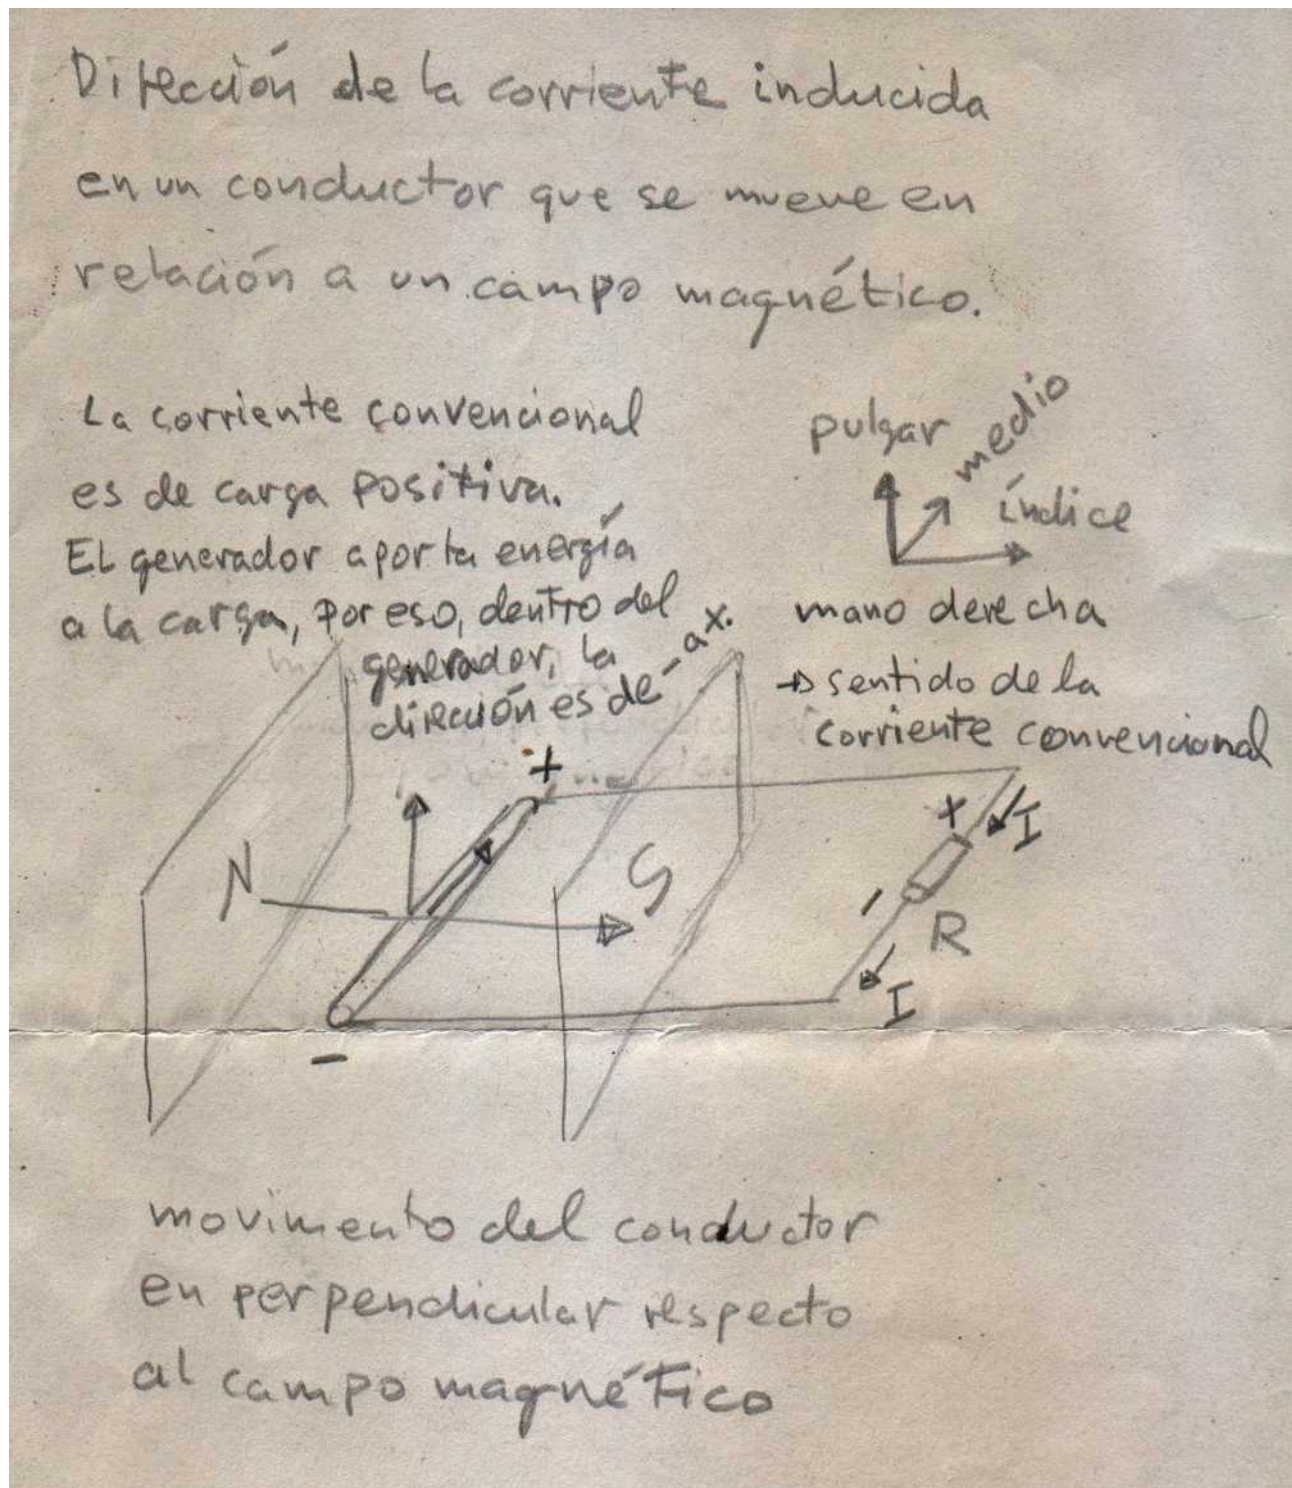 Dirección de la corriente inducida
en un conductor que se mueve en
relación a un campo magnético.
La corriente convencional
es de carga positiva.
El generador aporta energía
a la carga, por eso, dentro del
generador, la
dirección es de - a x.
pulgar
medio
índice
mano derecha
→ sentido de la
corriente convencional
+
x
I
N
S
-
R
I
-
movimento del conductor
en perpendicular respecto
al campo magnético